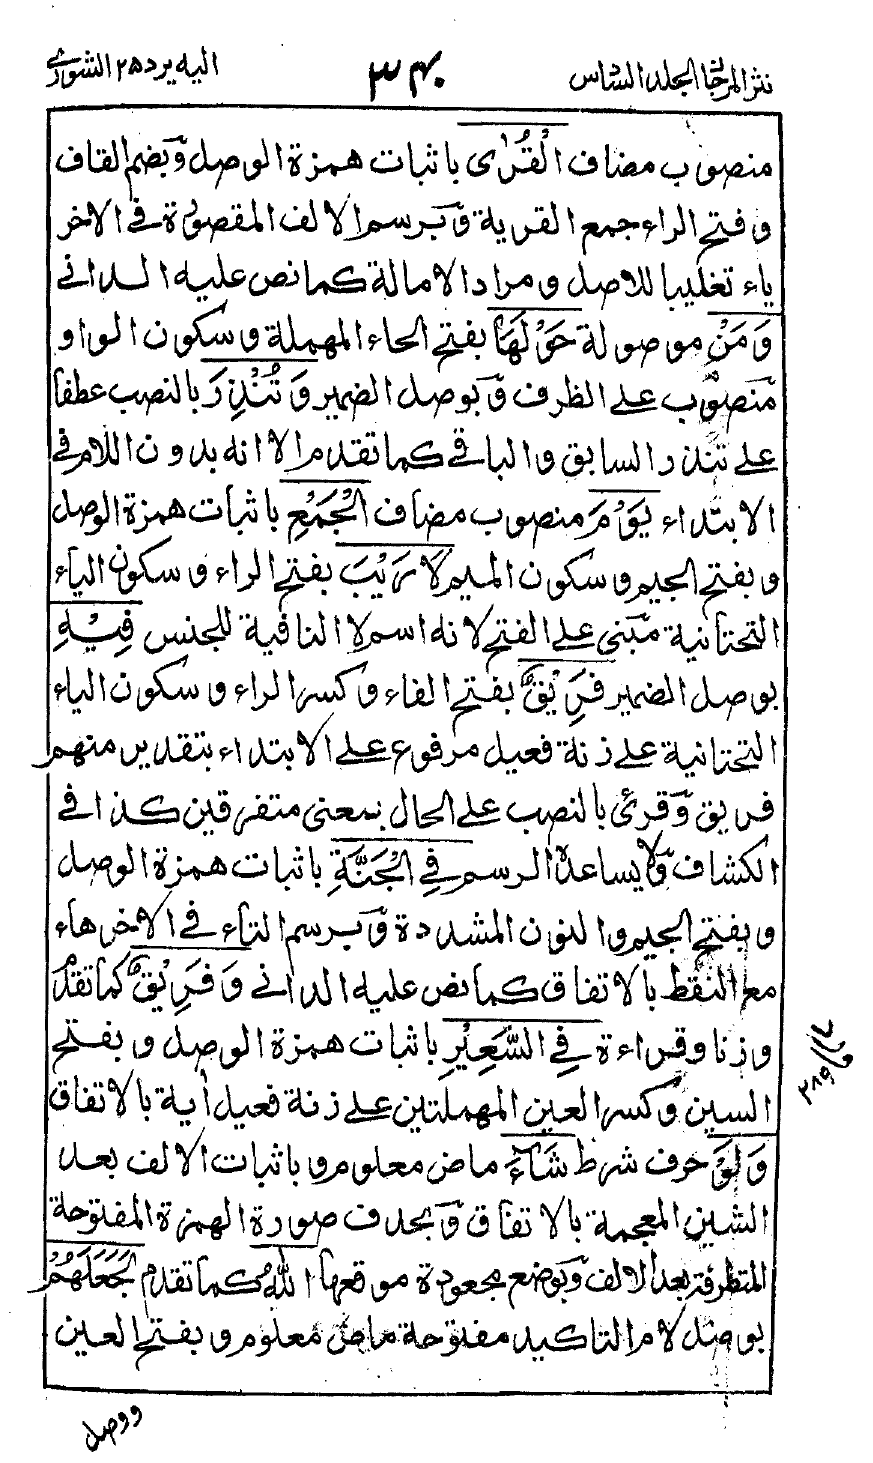 نثر المرجان المجلد السادس
٣٤٠
اليه يرد ٢٥ الشورى
منصوب مضاف الْقُرٰى باثبات همزة الوصل وبضم القاف
وفتح الراء جمع القرية وبرسم الالف المقصورة في الاخر
ياء تغليبا للاصل ومراد الامالة كما نص عليه الداني
وَمَنْ موصولة حَوْلَهَا بفتح الحاء المهملة وسكون الواو
منصوب على الظرف وبوصل الضمير وَتُنْذِرَ بالنصب عطفا
على تنذر السابق والباقي كما تقدم الا انه بدون اللام في
الابتداء يَوْمَ منصوب مضاف الْجَمْعِ باثبات همزة الوصل
وبفتح الجيم وسكون الميم لَا رَيْبَ بفتح الراء وسكون الياء
التحتانية مبنى على الفتح لانه اسم لا النافية للجنس فِيْهِ
بوصل الضمير فَرِيْقٌ بفتح الفاء وكسر الراء وسكون الياء
التحتانية على زنة فعيل مرفوع على الابتداء بتقدير منهم
فريق وقرئ بالنصب على الحال بمعنى متفرقين كذا في
الكشاف ولا يساعده الرسم فِي الْجَنَّةِ باثبات همزة الوصل
وبفتح الجيم والنون المشددة وبرسم التاء في الاخر هاء
مع النقط بالاتفاق كما نص عليه الداني وَفَرِيْقٌ كما تقدم
وزنا وقراءة فِي السَّعِيْرِ باثبات همزة الوصل وبفتح
السين وكسر العين المهملتين على زنة فعيل أية بالاتفاق
وَلَوْ حرف شرط شَآءَ ماض معلوم وباثبات الالف بعد
الشين المعجمة بالاتفاق وبحذف صورة الهمزة المفتوحة
المتطرفة بعد الالف وبوضع مجعودة موقعها اللهُ كما تقدم لَجَعَلَهُمْ
بوصل لام التاكيد مفتوحة ماض معلوم وبفتح العين
ووصل